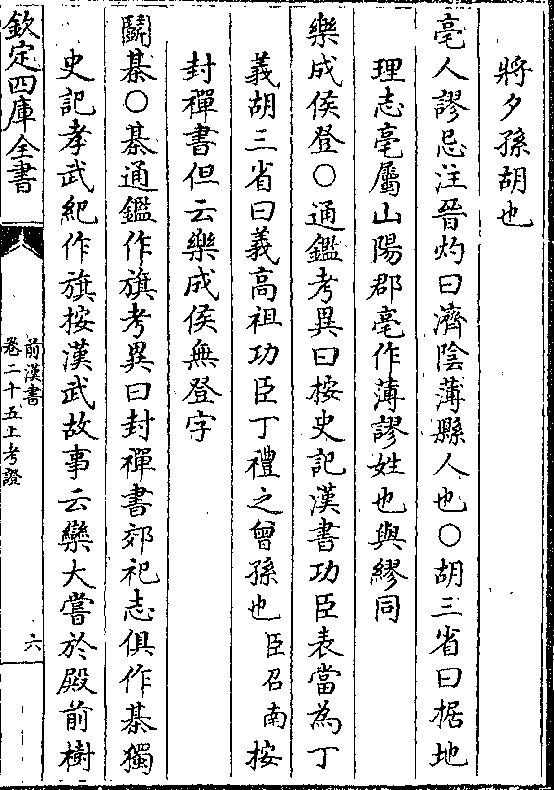 將夕孫胡也
亳人謬忌注晉灼曰濟陰薄縣人也○胡三省曰㨿地
理志亳屬山陽郡亳作薄謬姓也與繆同
樂成侯登○通鑑考異曰按史記漢書功臣表當為丁
義胡三省曰義髙祖功臣丁禮之曾孫也臣召南按
封禪書但云樂成侯無登字
鬭棊○棊通鑑作旗考異曰封禪書郊祀志俱作棊獨
史記孝武紀作旗按漢武故事云欒大嘗於殿前樹
欽定四庫全書
前漢書
卷二十五上考證
六